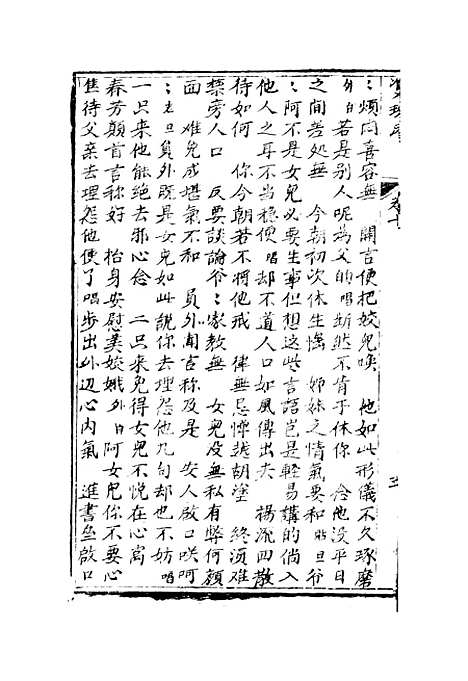 ：煩悶喜容無　開言便把姣兒喚　他如此形儀不久琢磨
外白若是别人呢為父的唱斷然不肯于休你　念他没平日
之間差処無　今朝初次休生惱　姊妹之情氣要和貼旦爷
：阿不是女兒必要生事但想这些言語豈是輕易講的倘入
他人之耳不当穩便唱却不道人口如風傳出去　楊流四散
待如何　你今朝若不將他戒　律無忌憚越胡塗　終須难
禁旁人口　反要談論爷：家教無　女兒及無私有弊何顔
面　难免感堪氣不和　員外聞言称及是　安人啟口咲呵
：老旦員外既是女兒如此説你去理怨他几句却也不妨唱
一只来他能絶去邪心念　二只来免得女兒不悦在心窩
春芳顛首言称好　抬身安慰美姣娥外白阿女兒你不要心
焦待父亲去理怨他便了唱步出外边心内氣　進書坐啟口